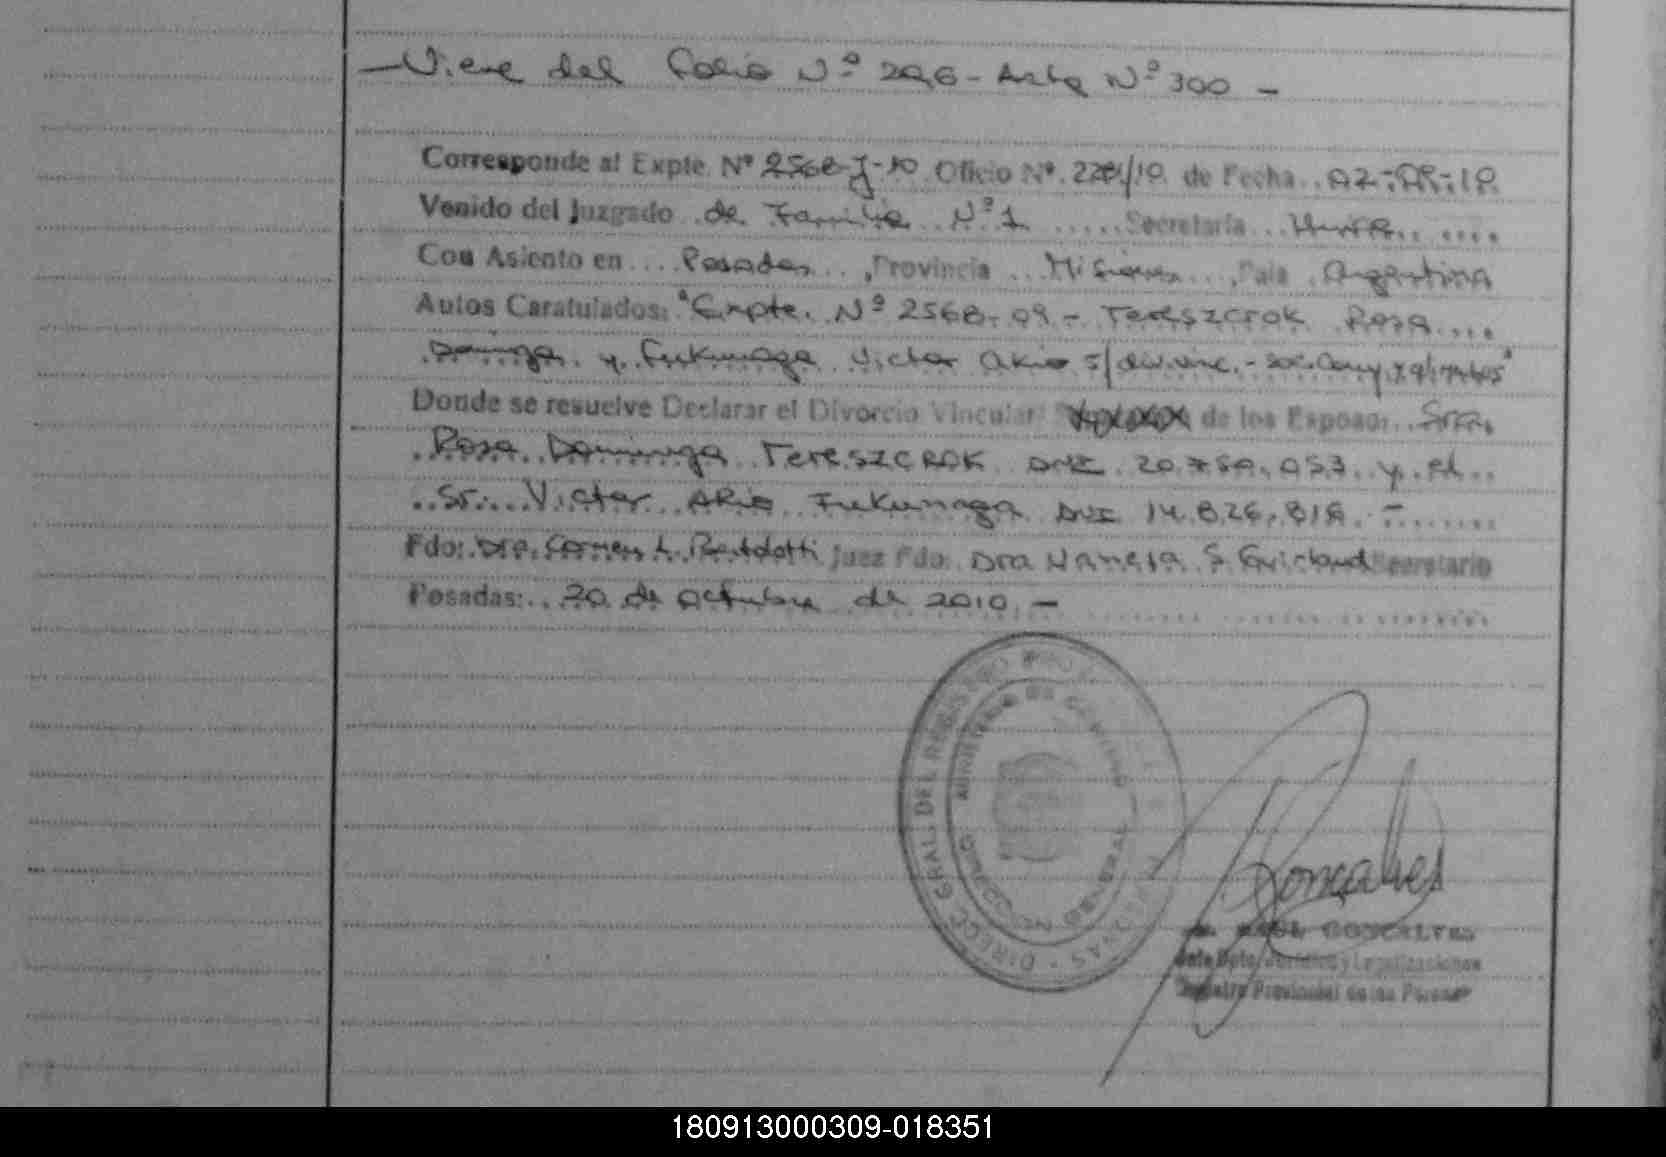 —Viene del Folio Nº 296 - Acta Nº 300 —
Corresponde al Expte. Nº 2568-J-10 Oficio Nº. 2281/10. de Fecha
Venido del Juzgado de Familia Nº 1 ..... Secretaría ... Unica......
Con Asiento en .... Posadas..., Provincia .. Misiones..., Pais . Argentina
Autos Caratulados: "Expte. Nº 2568-09 - Tereszcrok Rosa....
Dominga y Fukunaga Victor Akio s/ div.vinc.-
Donde se resuelve Declarar el Divorcio Vincular de los Esposos: .. Sra.
.Rosa Dominga Tereszcrok DNI 20.750.053 y el..
..Sr.... Victor Akio Fukunaga DNI 14.826.818. -.......
Fdo: Dra. Carmen L. Juez Fdo: Dra Vanesa S. Secretario
Posadas:.. 20 de octubre de 2010. —
DIREC. GRAL. DEL REGISTRO PROV.
MINISTERIO DE GOBIERNO
Goncalves
RAUL GONCALVES
Jefe Dpto. Jurídico y Legalizaciones
Registro Provincial de las Personas
180913000309-018351